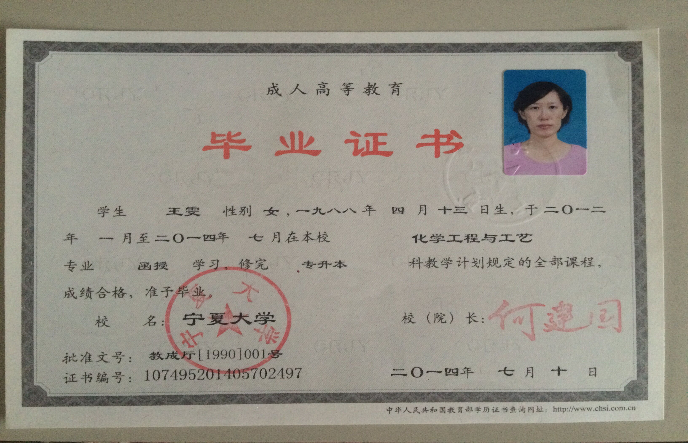 成人高等教育
毕业证书
学生 王雯 性别 女，一九八八年 四 月 十三 日生，于二〇一二
年 一月至二〇一四年 七月在本校 化学工程与工艺
专业 函授 学习，修完 专升本 科教学计划规定的全部课程，
成绩合格，准予毕业。
校 名：宁夏大学 校（院）长：何建国
宁夏大学
批准文号：教成厅[1990]001号
证书编号：107495201405702497 二〇一四年 七月 十 日
中华人民共和国教育部学历证书查询网址：http://www.chsi.com.cn